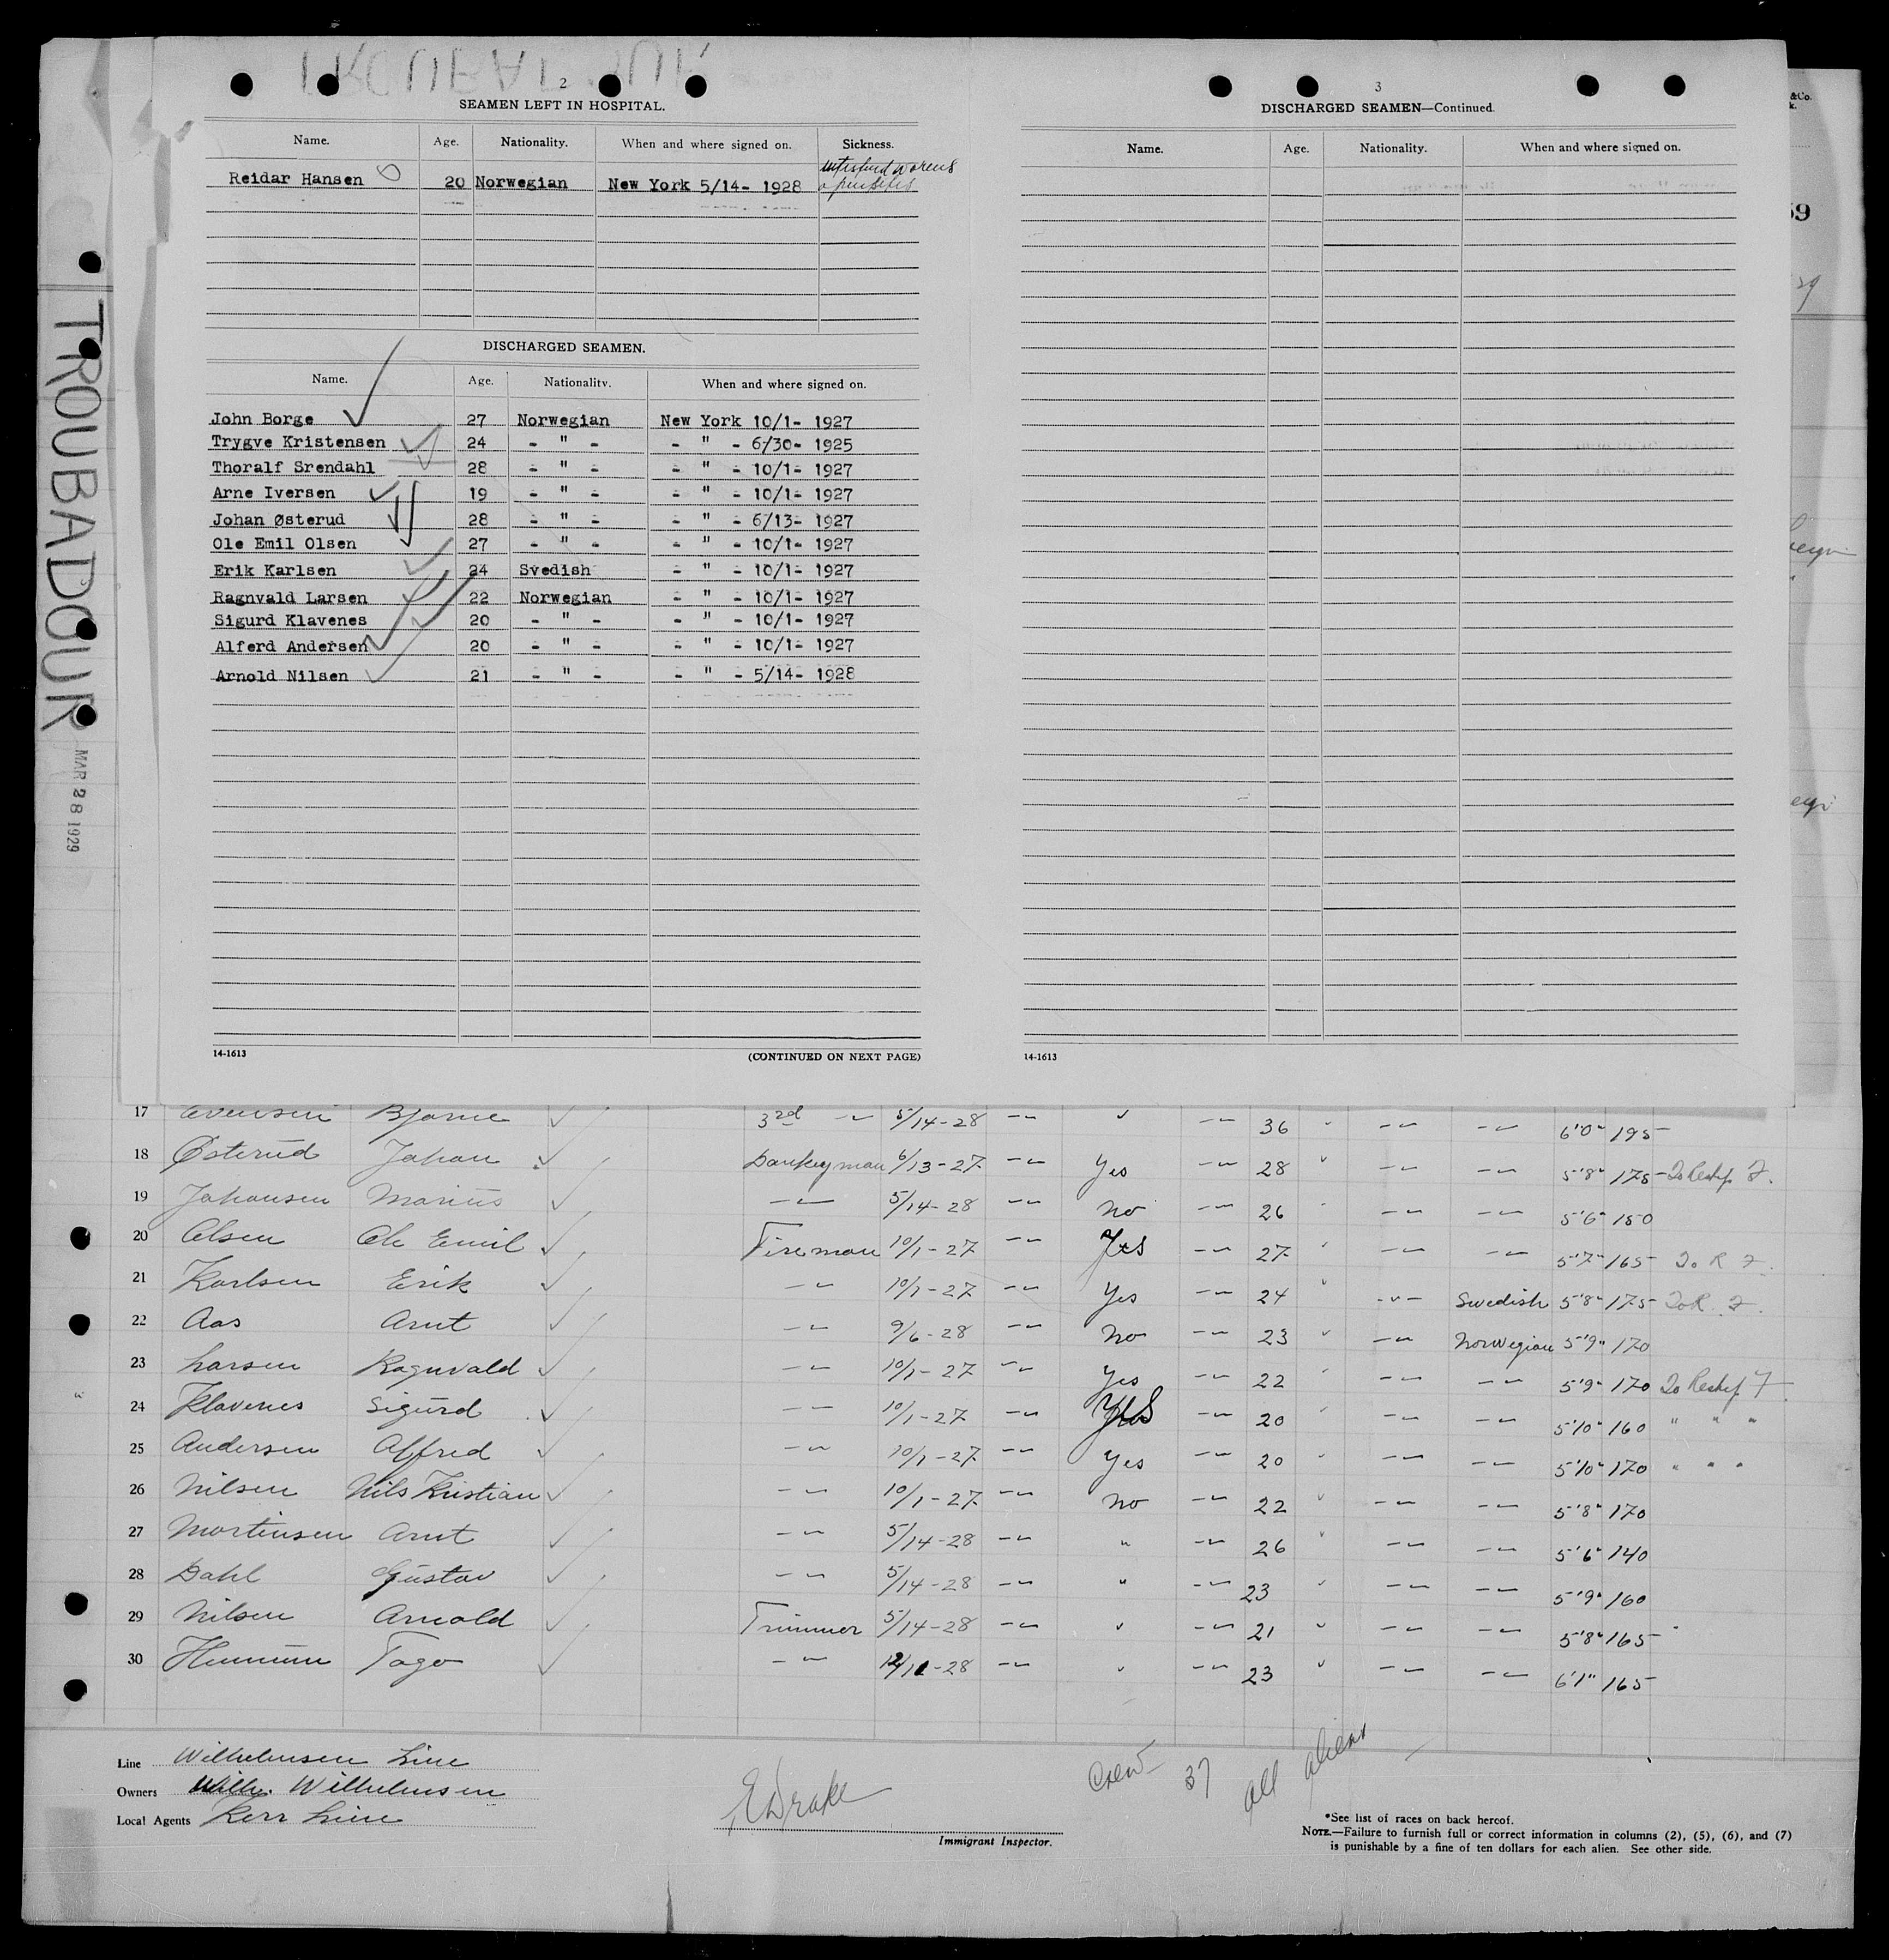 TROUBADOUR
MAR 28 1929
2
SEAMEN LEFT IN HOSPITAL.
Name. Age. Nationality. When and where signed on. Sickness.
Reidar Hansen 20 Norwegian New York 5/14- 1928
DISCHARGED SEAMEN.
Name. Age. Nationality. When and where signed on.
John Borge 27 Norwegian New York 10/1- 1927
Trygve Kristensen 24 - " - - " - 6/30- 1925
Thoralf Srendahl 28 - " - - " - 10/1- 1927
Arne Iversen 19 - " - - " - 10/1- 1927
Johan Østerud 28 - " - - " - 6/13- 1927
Ole Emil Olsen 27 - " - - " - 10/1- 1927
Erik Karlsen 24 Svedish - " - 10/1- 1927
Ragnvald Larsen 22 Norwegian - " - 10/1- 1927
Sigurd Klavenes 20 - " - - " - 10/1- 1927
Alferd Andersen 20 - " - - " - 10/1- 1927
Arnold Nilsen 21 - " - - " - 5/14- 1928
14-1613 (CONTINUED ON NEXT PAGE)
3
DISCHARGED SEAMEN—Continued.
Name. Age. Nationality. When and where signed on.
14-1613
&Co.
59
17 Evensen Bjarne 3rd -〃- 5/14-28 -〃- 〃 -〃- 36 〃 -〃- -〃- 6'0" 195
18 Østerud Johan Donkeyman 6/13-27 -〃- Yes -〃- 28 〃 -〃- -〃- 5'8" 175 To Reshp. F.
19 Johansen Marius -〃- 5/14-28 -〃- No -〃- 26 〃 -〃- -〃- 5'6" 150
20 Olsen Ole Emil Fireman 10/1-27 -〃- Yes -〃- 27 〃 -〃- -〃- 5'7" 165 To R F.
21 Karlsen Erik -〃- 10/1-27 -〃- Yes -〃- 24 〃 -〃- Swedish 5'8" 175 To R. F.
22 Aas Arnt -〃- 9/6-28 -〃- No -〃- 23 〃 -〃- Norwegian 5'9" 170
23 Larsen Ragnvald -〃- 10/1-27 -〃- Yes -〃- 22 〃 -〃- -〃- 5'9" 170 To Reshp. F
24 Klavenes Sigurd -〃- 10/1-27 -〃- Yes -〃- 20 〃 -〃- -〃- 5'10" 160 " " "
25 Andersen Alfred -〃- 10/1-27 -〃- Yes -〃- 20 〃 -〃- -〃- 5'10" 170 " " "
26 Nilsen Nils Kristian -〃- 10/1-27 -〃- No -〃- 22 〃 -〃- -〃- 5'8" 170
27 Mortensen Arnt -〃- 5/14-28 -〃- 〃 -〃- 26 〃 -〃- -〃- 5'6" 140
28 Dahl Gustav -〃- 5/14-28 -〃- 〃 -〃- 23 〃 -〃- -〃- 5'9" 160
29 Nilsen Arnold Trimmer 5/14-28 -〃- 〃 -〃- 21 〃 -〃- -〃- 5'8" 165
30 Tage -〃- -28 -〃- 〃 -〃- 23 〃 -〃- -〃- 6'1" 165
Line Wilhelmsen Line
Owners Wilh. Wilhelmsen
Local Agents Kerr Line
E Drake
Immigrant Inspector.
Crew 37 all aliens
*See list of races on back hereof.
NOTE.—Failure to furnish full or correct information in columns (2), (5), (6), and (7)
is punishable by a fine of ten dollars for each alien. See other side.